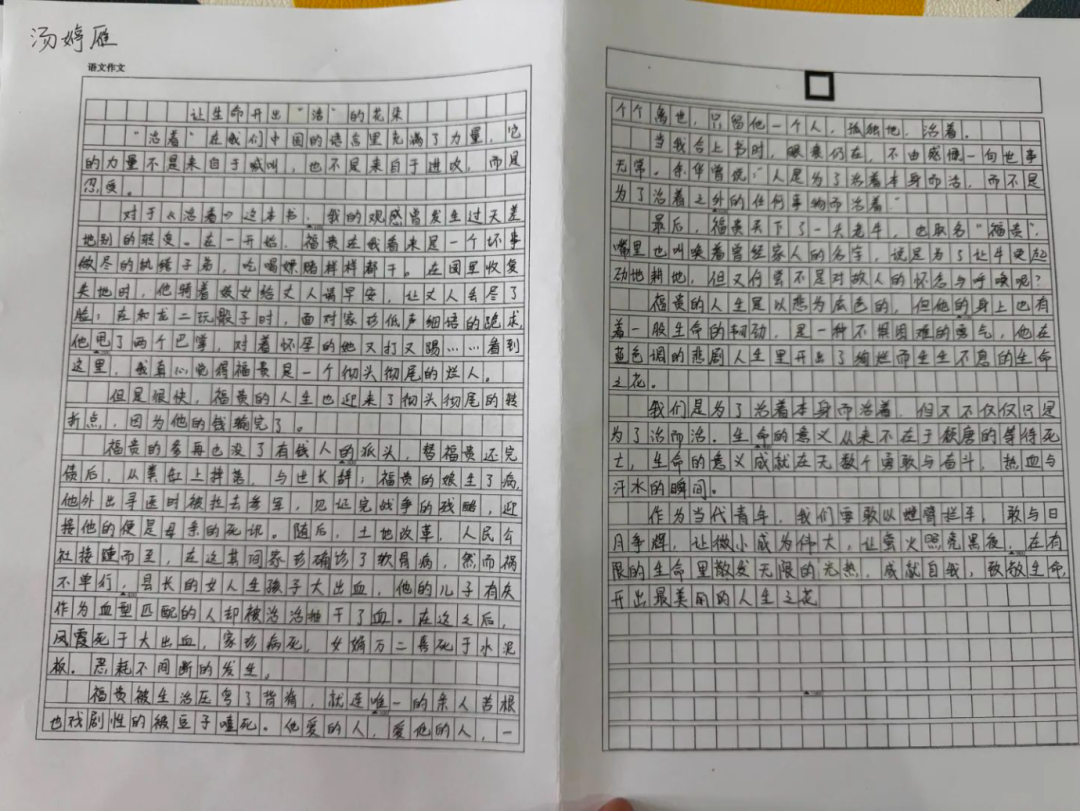 汤婷雁
语文作文
让生命开出“活”的花朵
“活着”在我们中国的语言里充满了力量，它
的力量不是来自于喊叫，也不是来自于进攻，而是
忍受。
对于《活着》这本书，我的观感曾发生过天差
地别的转变。在一开始，福贵在我看来是一个坏事
做尽的纨绔子弟，吃喝嫖赌样样都干。在国里收复
失地时，他骑着妓女给丈人请早安，让丈人丢尽了
脸；在和龙二玩骰子时，面对家珍低声细语的跪求，
他甩了两个巴掌，对着怀孕的她又打又踢……看到
这里，我真心觉得福贵是一个彻头彻尾的烂人。
但是很快，福贵的人生也迎来了彻头彻尾的转
折点，因为他的钱输完了。
福贵的爹再也没了有钱人的派头，替福贵还完
债后，从粪缸上摔落，与世长辞；福贵的娘生了病，
他外出寻医时被拉去参军，见证完战争的残酷，迎
接他的便是母亲的死讯。随后，土地改革，人民公
社接踵而至，在这其间家珍确诊了软骨病，然而祸
不单行，县长的女人生孩子大出血，他的儿子有庆
作为血型匹配的人却被活活抽干了血。在这之后，
凤霞死于大出血，家珍病死，女婿万二喜死于水泥
板。恶耗不间断的发生。
福贵被生活压弯了背脊，就连唯一的亲人苦根
也戏剧性的被豆子噎死。他爱的人，爱他的人，一
个个离世，只留他一个人，孤独地，活着。
当我合上书时，眼泪仍在，不由感慨一句世事
无常。余华曾说：“人是为了活着本身而活，而不是
为了活着之外的任何事物而活着。”
最后，福贵买下了一头老牛，也取名“福贵”，
嘴里也叫唤着曾经家人的名字，说是为了让牛更起
劲地耕地，但又何尝不是对故人的怀念与呼唤呢？
福贵的人生是以悲为底色的，但他的身上也有
着一股生命的韧劲，是一种不惧困难的勇气，他在
蓝色调的悲剧人生里开出了绚烂而生生不息的生命
之花。
我们是为了活着本身而活着，但又不仅仅只是
为了活而活。生命的意义从来不在于颓唐的等待死
亡，生命的意义成就在无数个勇敢与奋斗，热血与
汗水的瞬间。
作为当代青年，我们要敢以螳臂拦车，敢与日
月争辉，让微小成为伟大，让萤火照亮黑夜，在有
限的生命里散发无限的光热，成就自我，致敬生命，
开出最美丽的人生之花